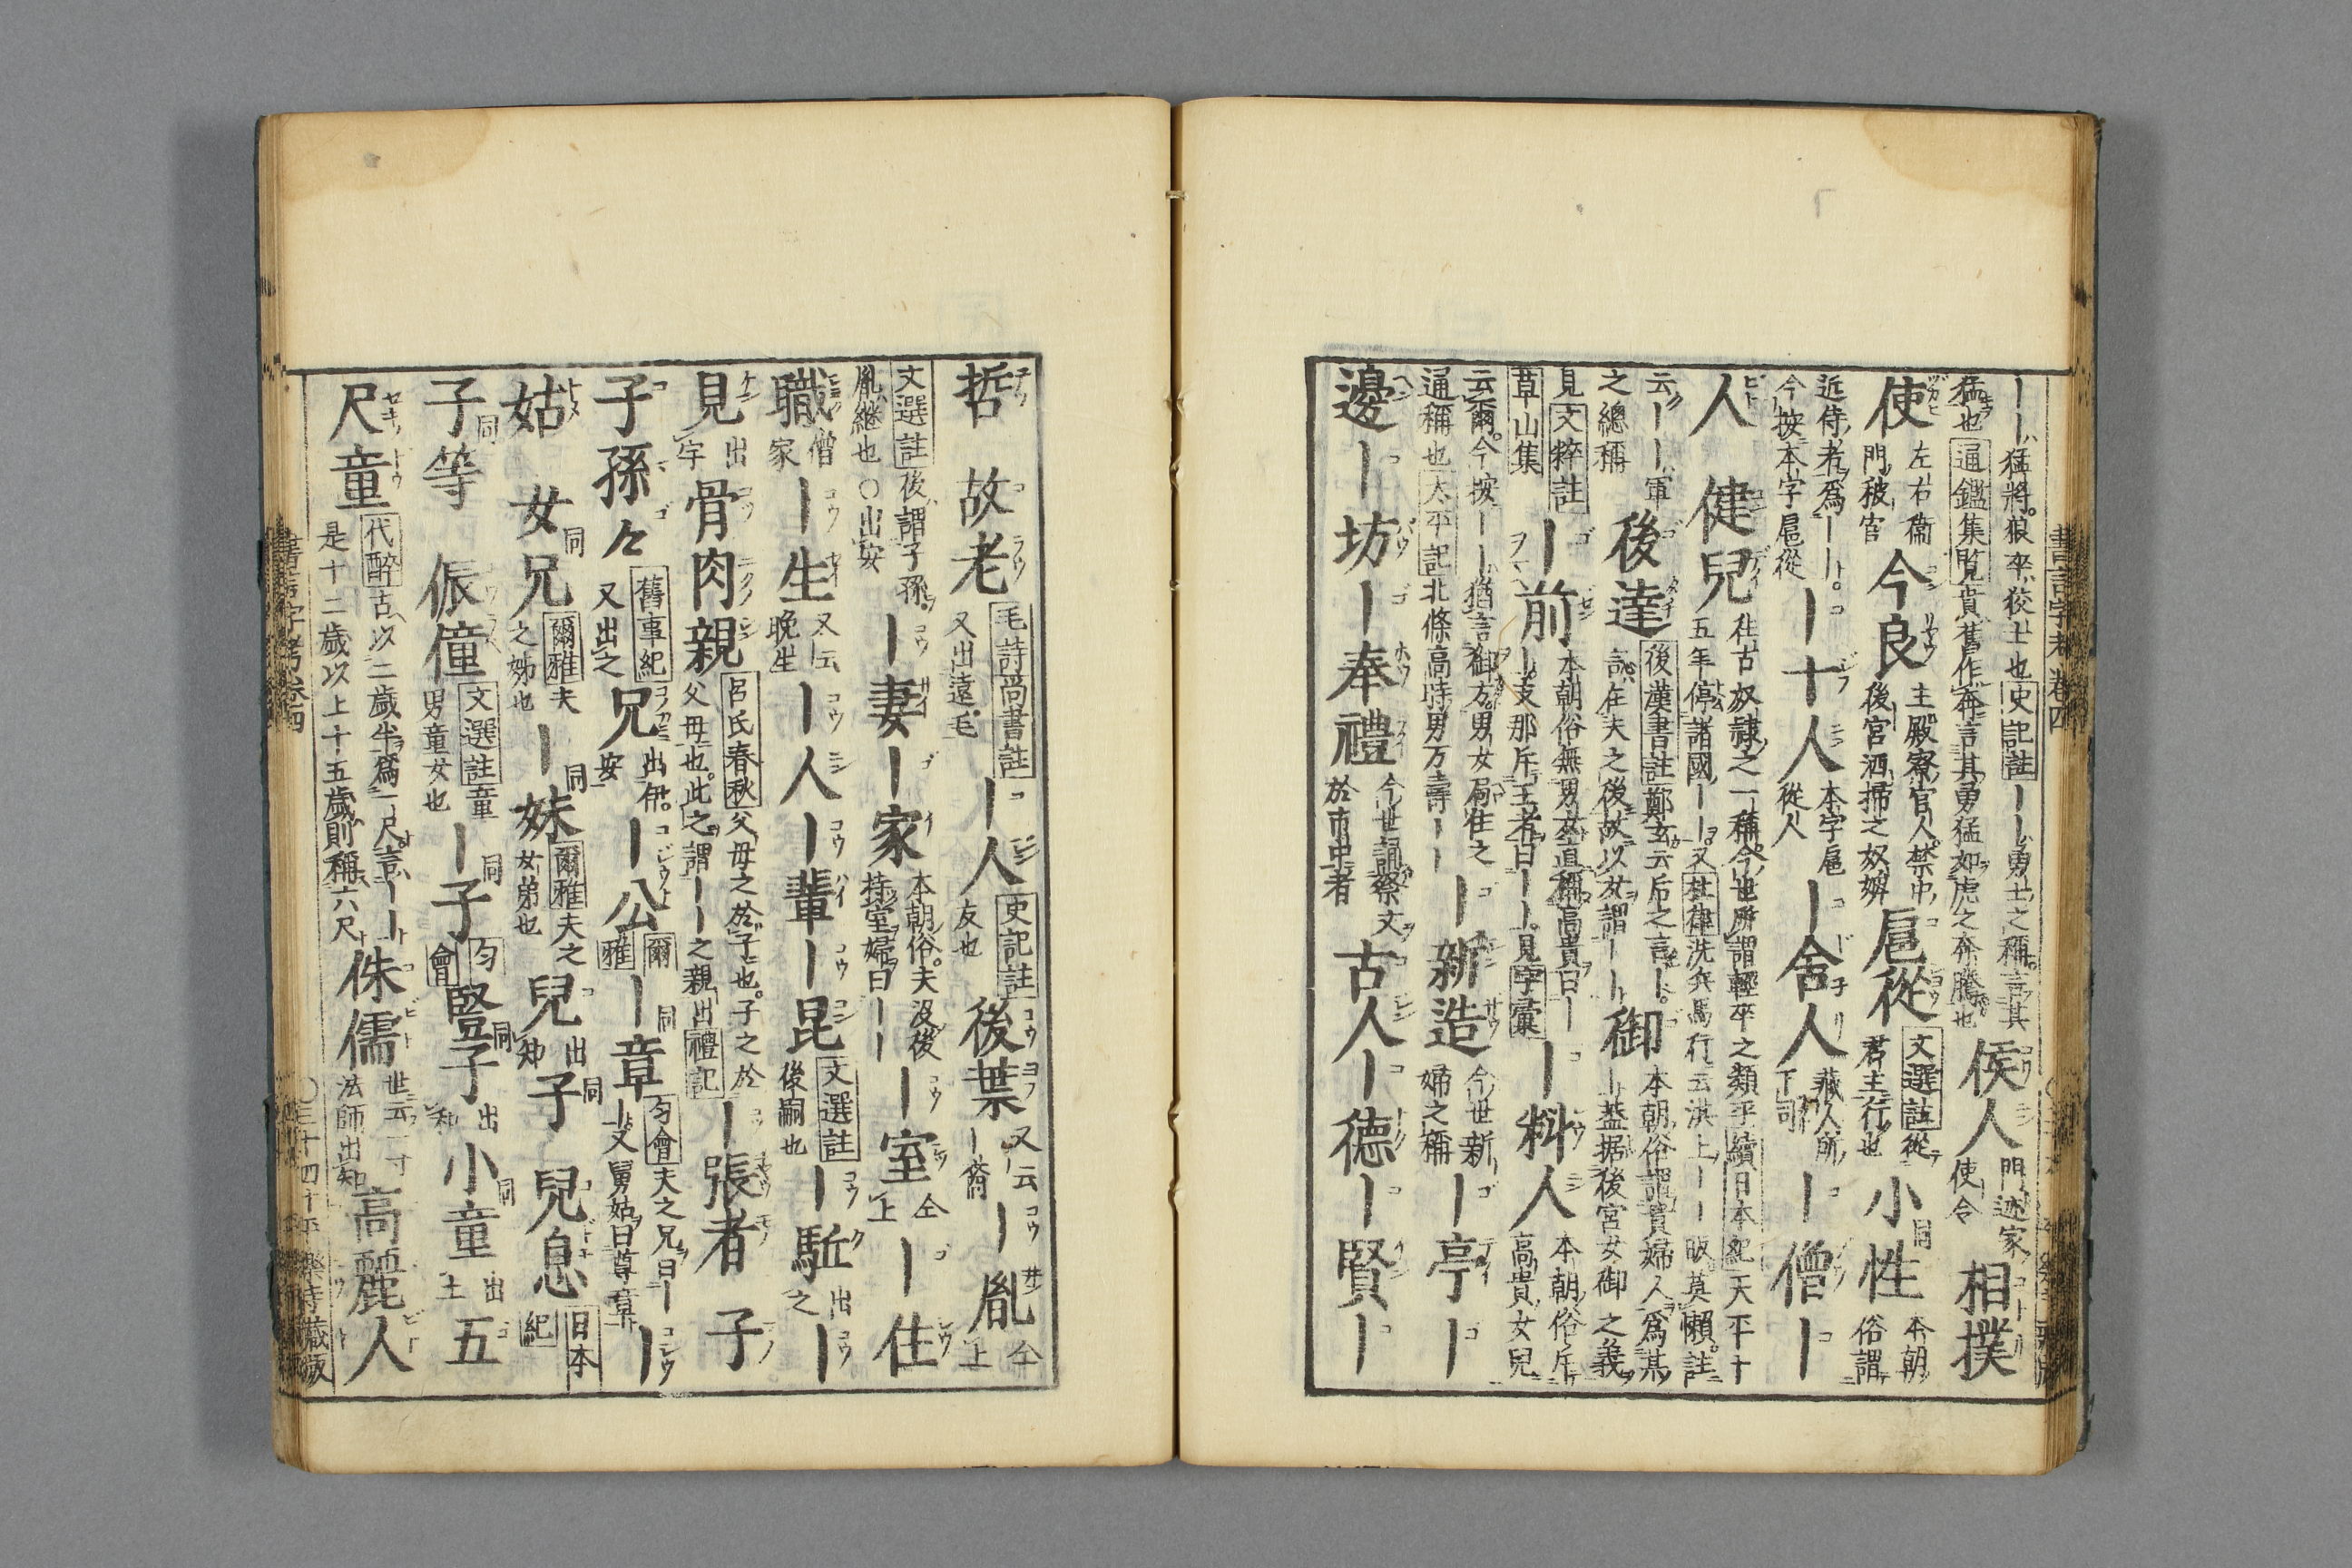 書言字考 卷四
――猛將。狼卒、狡士也 史記註 ――勇士之稱。言其
猛也 通鑑集覧 賁、舊作奔言其勇猛如虎之奔騰也 侯人 門迹家使令 相撲
使 左右衞門被官 今良 主殿寮官人。禁中後宮洒掃之奴婢 扈從 文選註 從君主行也 小性 同 本朝俗謂
近侍者爲――。今按本字扈從 ―十人 本字扈從人 ―舍人 藏人所下司 ―僧―
人 健兒 往古奴隷之一稱今世所謂輕卒之類乎 續日本紀 天平十五年停諸國――。又 杜律 洗兵馬行云淇上――皈莫懶。註
云――軍之總稱 後達 後漢書註 鄭玄云后之言―。言在夫之後故以女謂―― 御 本朝俗謂貴婦人爲某―蓋据後宮女御之義
見 文粹註 草山集 ―前 本朝俗無男女直稱高貴曰――支那斥王者曰――。見 字彙 ―料人 本朝俗斥高貴女兒
云爾。今按――猶言御方。男女局住之通稱也 太平記 北條高時男万壽―― ―新造 今世新婦之稱 ―亭―
邊―坊―奉禮 今世誦祭文於市中者 古人―德―賢―
哲 故老 毛詩尚書註 又出遠毛 ―人 史記註 友也 後葉 又云―裔 ―胤 仝上
文選註 後、謂子孫。胤、継也○出安 ―妻―家 本朝俗。夫没後持室婦曰―― ―室 仝上 ―住
職 僧家 ―生 又云晩生 ―人―輩―昆 文選註 後嗣也 ―駈 出之 ―
見 出宇 骨肉親 呂氏春秋 父母之於子也。子之於父母也。此之謂――之親 出 禮記 ―張者 子
子孫々 舊事紀 又出之 兄 出伊。安 ―公 爾雅 ―章 同 匀會 夫之兄曰――又舅姑曰尊章 ―
姑 女兄 同 爾雅 夫之姊也 ―妹 同 爾雅 夫之女弟也 兒 出知 子 同 兒息 日本紀
子等 同 侲僮 文選註 童男童女也 ―子 同 匀會 豎子 同 出和 小童 同 出土 五
尺童 代醉 古以二歲半爲一尺。言――是十二歲以上十五歲則稱六尺 侏儒 世云一寸法師出知 高麗人
書言字考 卷四